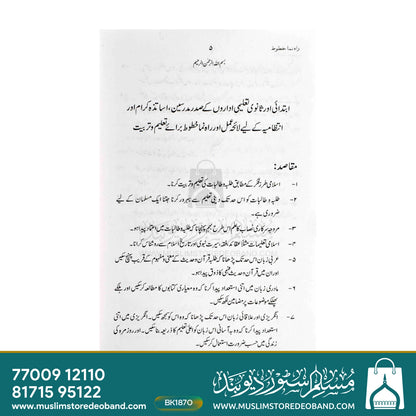 راہ نما خطوط
۵
بسم اللہ الرحمن الرحیم
ابتدائی اور ثانوی تعلیمی اداروں کے صدر مدرسین، اساتذہ کرام اور
انتظامیہ کے لیے لائحہ عمل اور راہ نما خطوط برائے تعلیم و تربیت
مقاصد:
۱- اسلامی طرز فکر کے مطابق طلبہ و طالبات کی تعلیم و تربیت کرنا۔
۲- طلبہ و طالبات کو اس حد تک دینی تعلیم سے بہرہ ور کرنا جتنا ایک مسلمان کے لیے
ضروری ہے۔
۳- مروجہ سرکاری نصاب کا علم اس طرح بہم پہنچانا کہ طلبہ و طالبات میں اعتماد پیدا ہو۔
۴- اسلامی تعلیمات مثلاً عقائد، فقہ، سیرت نبوی اور تاریخ اسلام سے روشناس کرانا۔
۵- عربی زبان اس حد تک پڑھانا کہ طلبہ قرآن و حدیث کے معنی و مفہوم کے قریب پہنچ سکیں
اور ان میں قرآن و حدیث فہمی کا ذوق پیدا ہو۔
۶- مادری زبان میں اتنی استعداد پیدا کرنا کہ وہ معیاری کتابوں کا مطالعہ کر سکیں اور ہلکے
پھلکے موضوعات پر مضامین لکھ سکیں۔
۷- انگریزی اور علاقائی زبان اس حد تک پڑھانا کہ وہ اس کو سمجھ سکیں۔ انگریزی میں اتنی
استعداد پیدا کرنا کہ وہ بہ آسانی اس زبان کو اعلیٰ تعلیم کا ذریعہ بنا سکیں۔ اور روز مرہ کی
زندگی میں حسب ضرورت استعمال کر سکیں۔
77009 12110
81715 95122
BK1870
مسلم اسٹور دیوبند
www.muslimstoredeoband.com
WWW.MUSLIMSTOREDEOBAND.COM